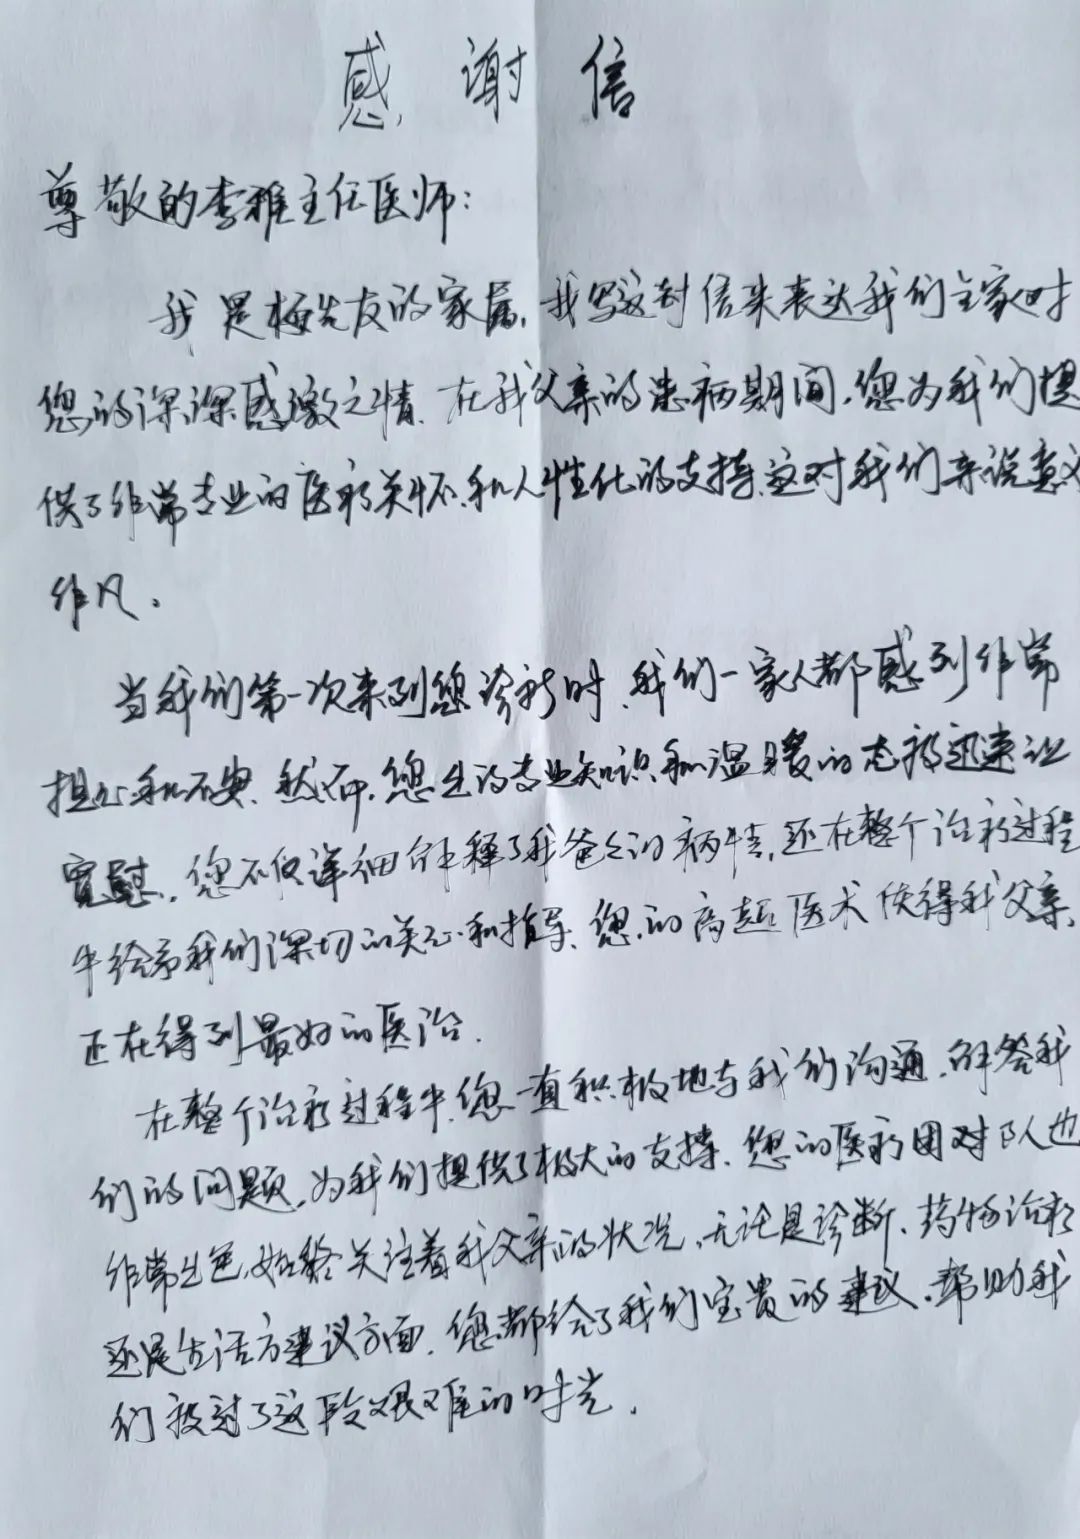 感谢信
尊敬的李雅主任医师:
我是梅先友的家属,我写这封信来表达我们全家对
您的深深感激之情.在我父亲的患病期间,您为我们提
供了非常专业的医疗关怀和人性化的支持,这对我们来说意义
非凡.
当我们第一次来到您诊所时,我们一家人都感到非常
担心和不安.然而,您的专业知识和温暖的态度迅速让
宽慰.您不仅详细解释了我爸爸的病情,还在整个治疗过程
中给予我们深切的关心和指导.您的高超医术使得我父亲
还在得到最好的医治.
在整个治疗过程中,您一直积极地与我们沟通,解答我
们的问题,为我们提供了极大的支持.您的医疗团对队也
非常出色,始终关注着我父亲的状况,无论是诊断、药物治疗
还是生活方建议方面,您都给了我们宝贵的建议,帮助我
们渡过了这段艰难的时光.